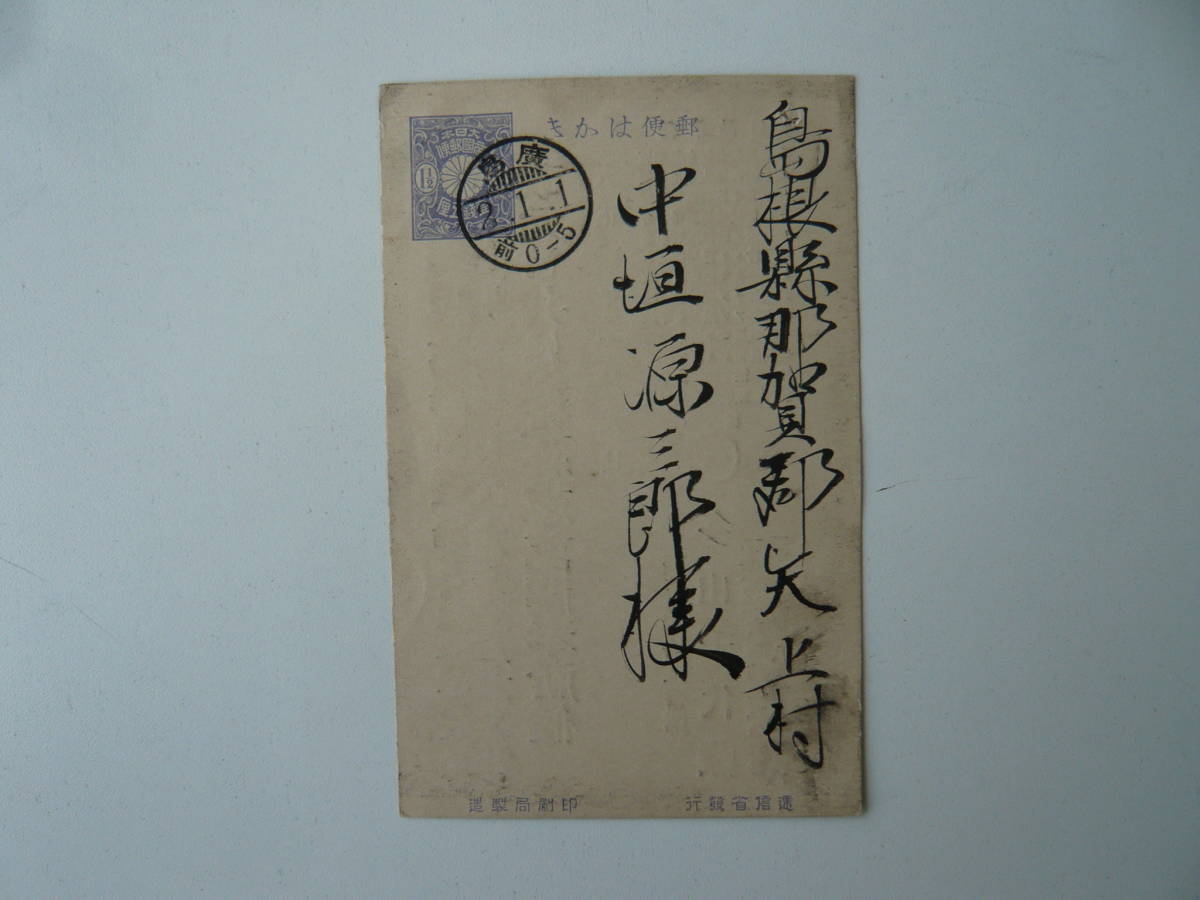 郵便はかき
大日本
帝國郵便
1½
錢厘
廣島
2.1.1
前0-5
島根縣那賀郡矢上村
中垣源三郎様
遞信省發行
印刷局製造